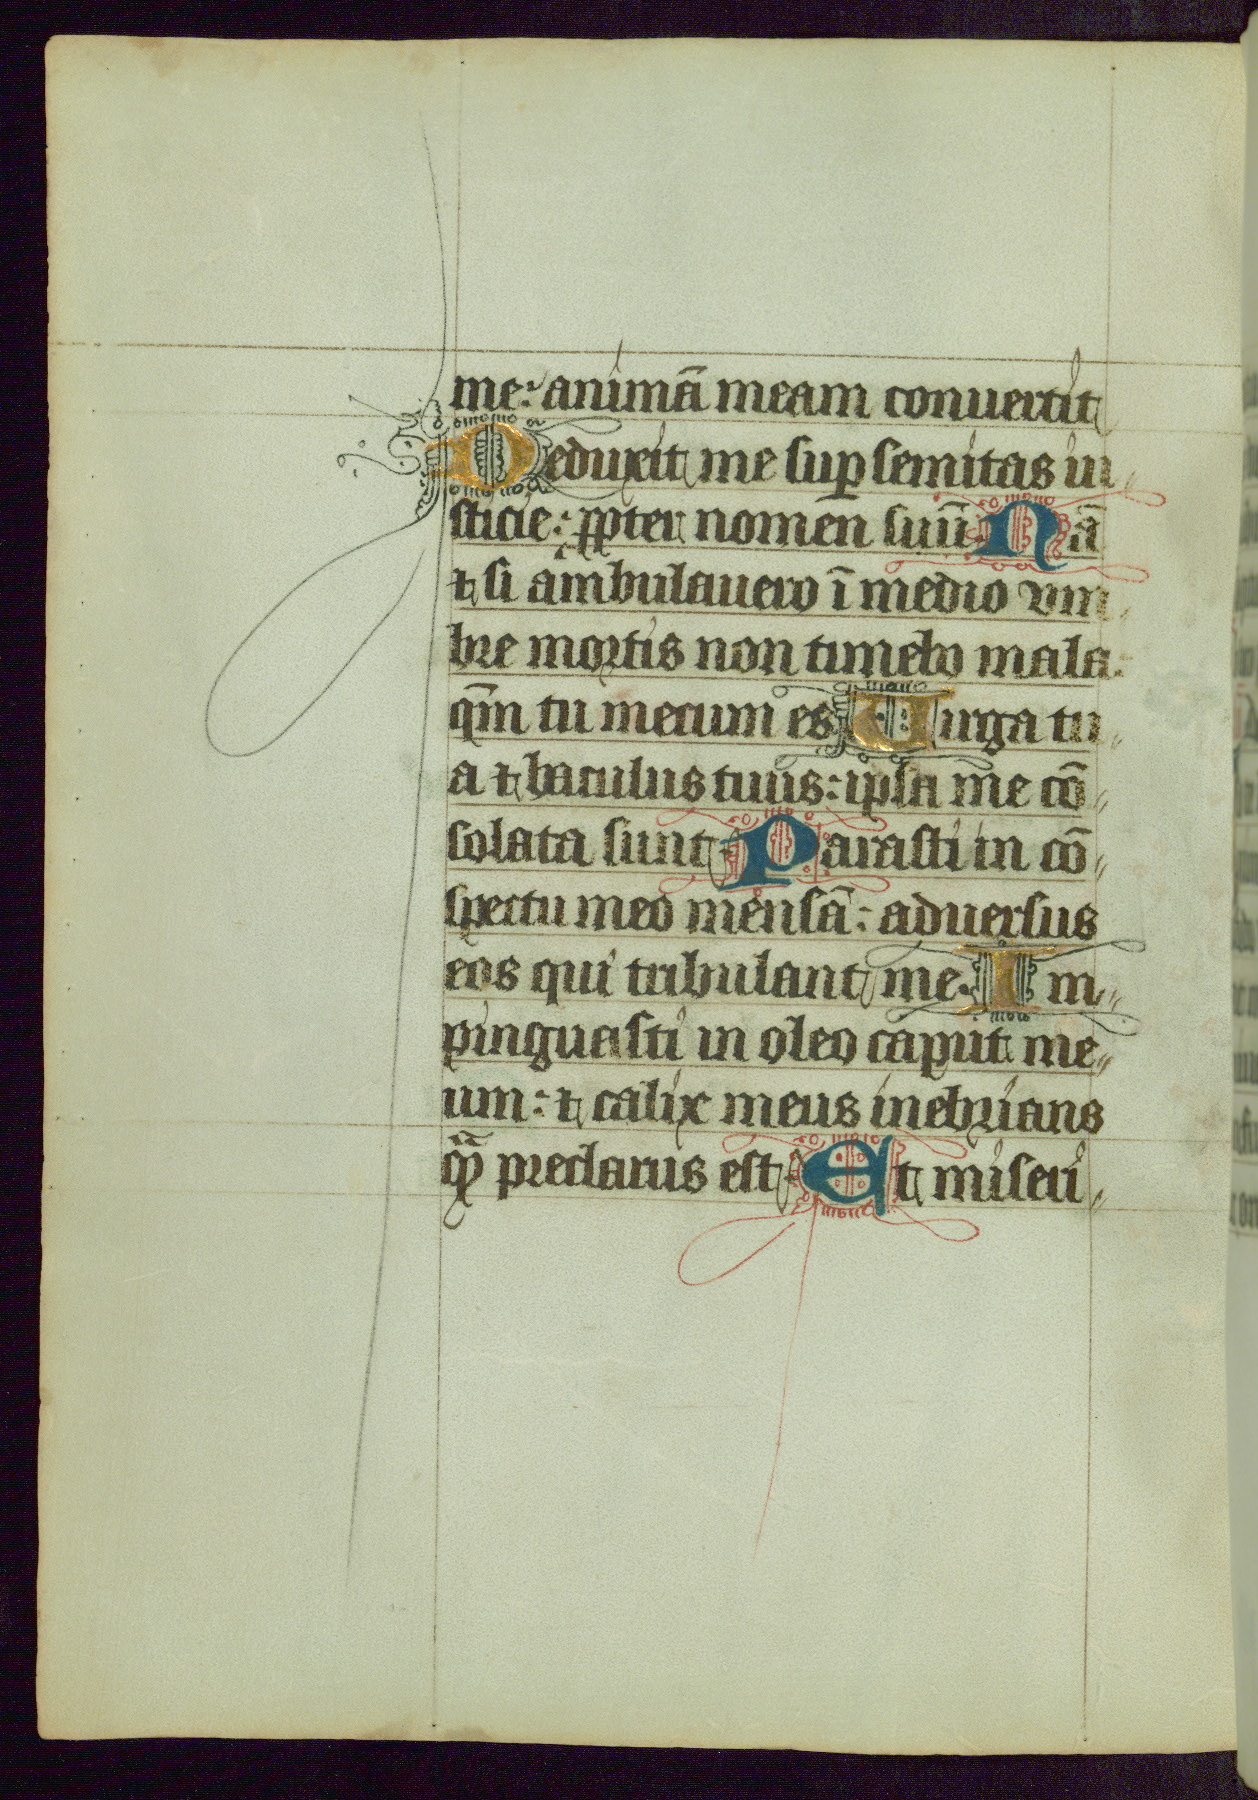 me: animā meam conuertit
Deduxit me suꝑ semitas iu
sticie: ꝓpter nomen suū Nā
⁊ si ambulauero ī medio vm
bre mortis non timebo mala:
qm̄ tu mecum es Uirga tu
a ⁊ baculus tuus: ipsa me cō
solata sunt Parasti in cō
spectu meo mensā: aduersus
eos qui tribulant me. Im
pinguasti in oleo caput me
um: ⁊ calix meus inebrians
qȝ̄ preclarus est Et miseri